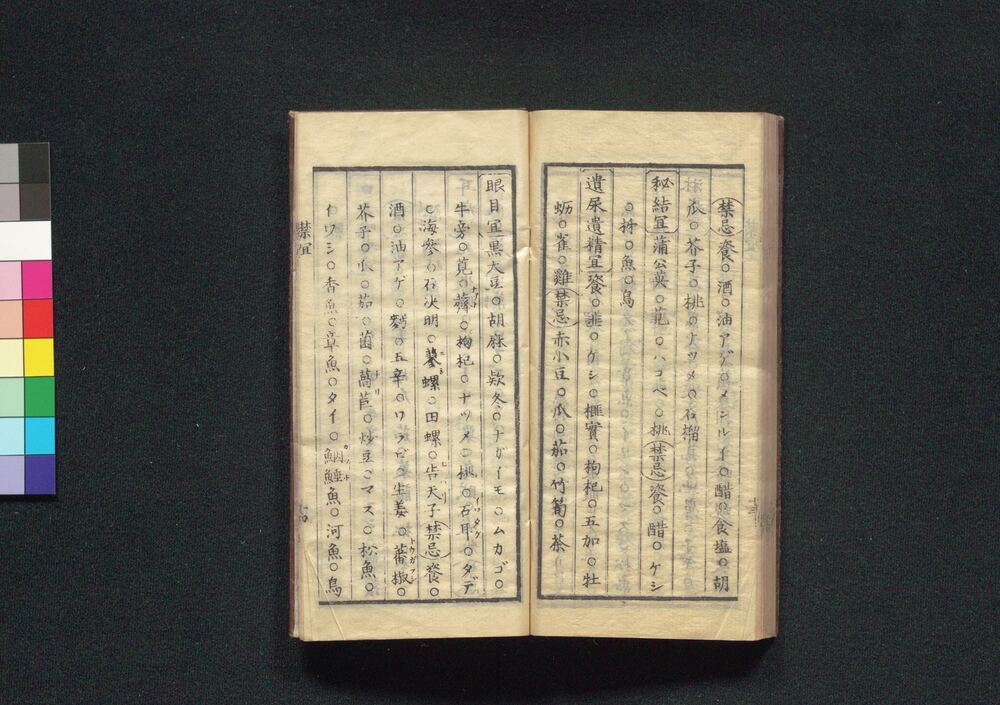 禁忌餈○酒○油アゲ○メンルイ○醋○食塩○胡
瓜○芥子○桃○ナツメ○石榴
秘結冝蒲公英○芤○ハコベ○桃禁忌餈○醋○ケシ
○䊆○魚○鳥
遺尿遺精冝餈○韮○ケシ○榧實○拘杞○五加○牡
蛎○雀○雞禁忌赤小豆○瓜○茄○竹筍○茶
眼目冝黒大豆○胡麻○欵冬○ナガイモ○ムカゴ○
牛旁○莧○薺○拘杞○ナツメ○桃○石耳○タデ
○海参○石决明○蓼螺○田螺○告天子禁忌餈○
酒○油アゲ○麪○五辛○ワラビ○生姜○蕃椒○
芥子○瓜○茄○菌○萵苣○炒豆○マス○松魚○
イワシ○香魚○章魚○タイ○魚○河魚○鳥
禁冝